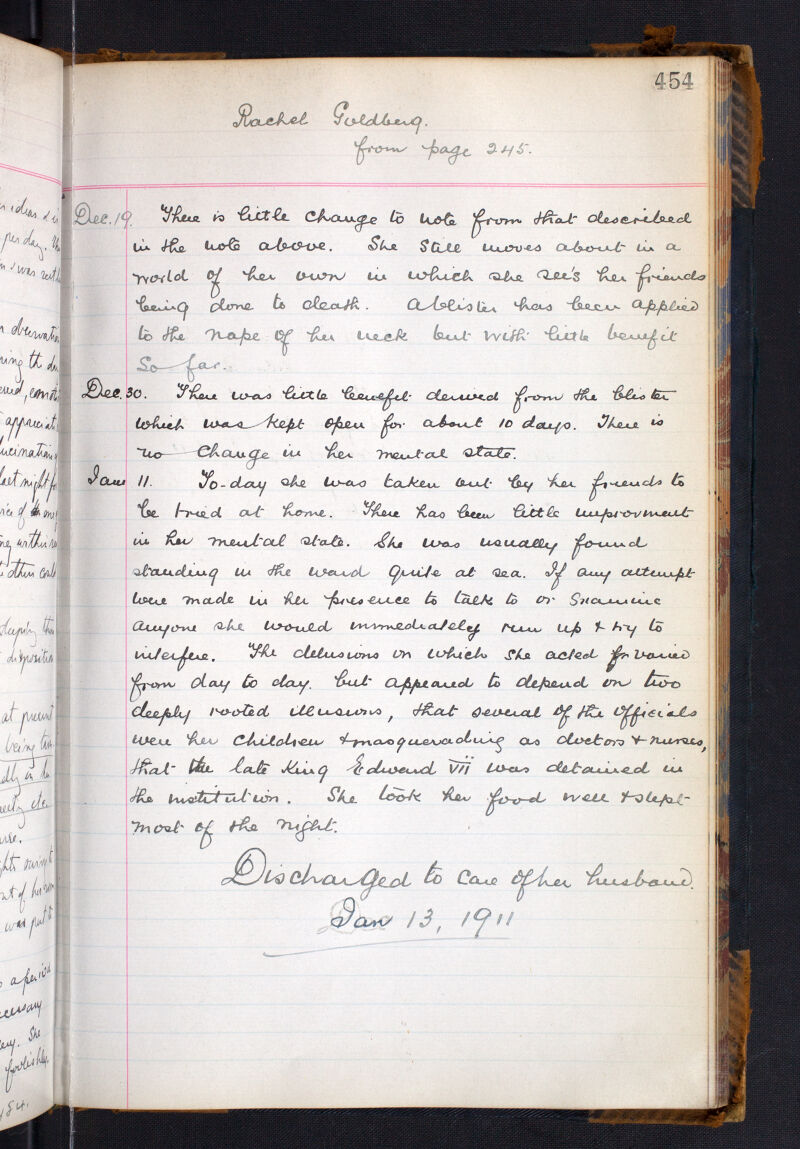 454
Rachel Goldberg.
from page 245.
Dec. 19. There is little change to note from that described
in the note above. She still moves about in a
world of her own in which she see's her friends
being done to death. A blister has been applied
to the nape of her neck but with little benefit
so far.
Dec. 30. There was little benefit derived from the blister
which was kept open for about 10 days. There is
no change in her mental state.
Jan 11. To-day she was taken out by her friends to
be tried at home. There has been little improvment
in her mental state. She was usually found
standing in the ward quite at sea. If any attempt
were made in her presence to talk to or examine
anyone she would immediately run up & try to
interfere. The delusions on which she acted varied
from day to day. but appeared to depend on two
deeply rooted illusions, that several of the officials
were her children & masquerading as doctors & nurses,
that the late King Edward VII was detained in
the institution. She took her food well & slept
most of the night.
Discharged to care of her husband.
Jan 13, 1911
per day.
at present
being
was put
a period
necessary
She
foolishly.